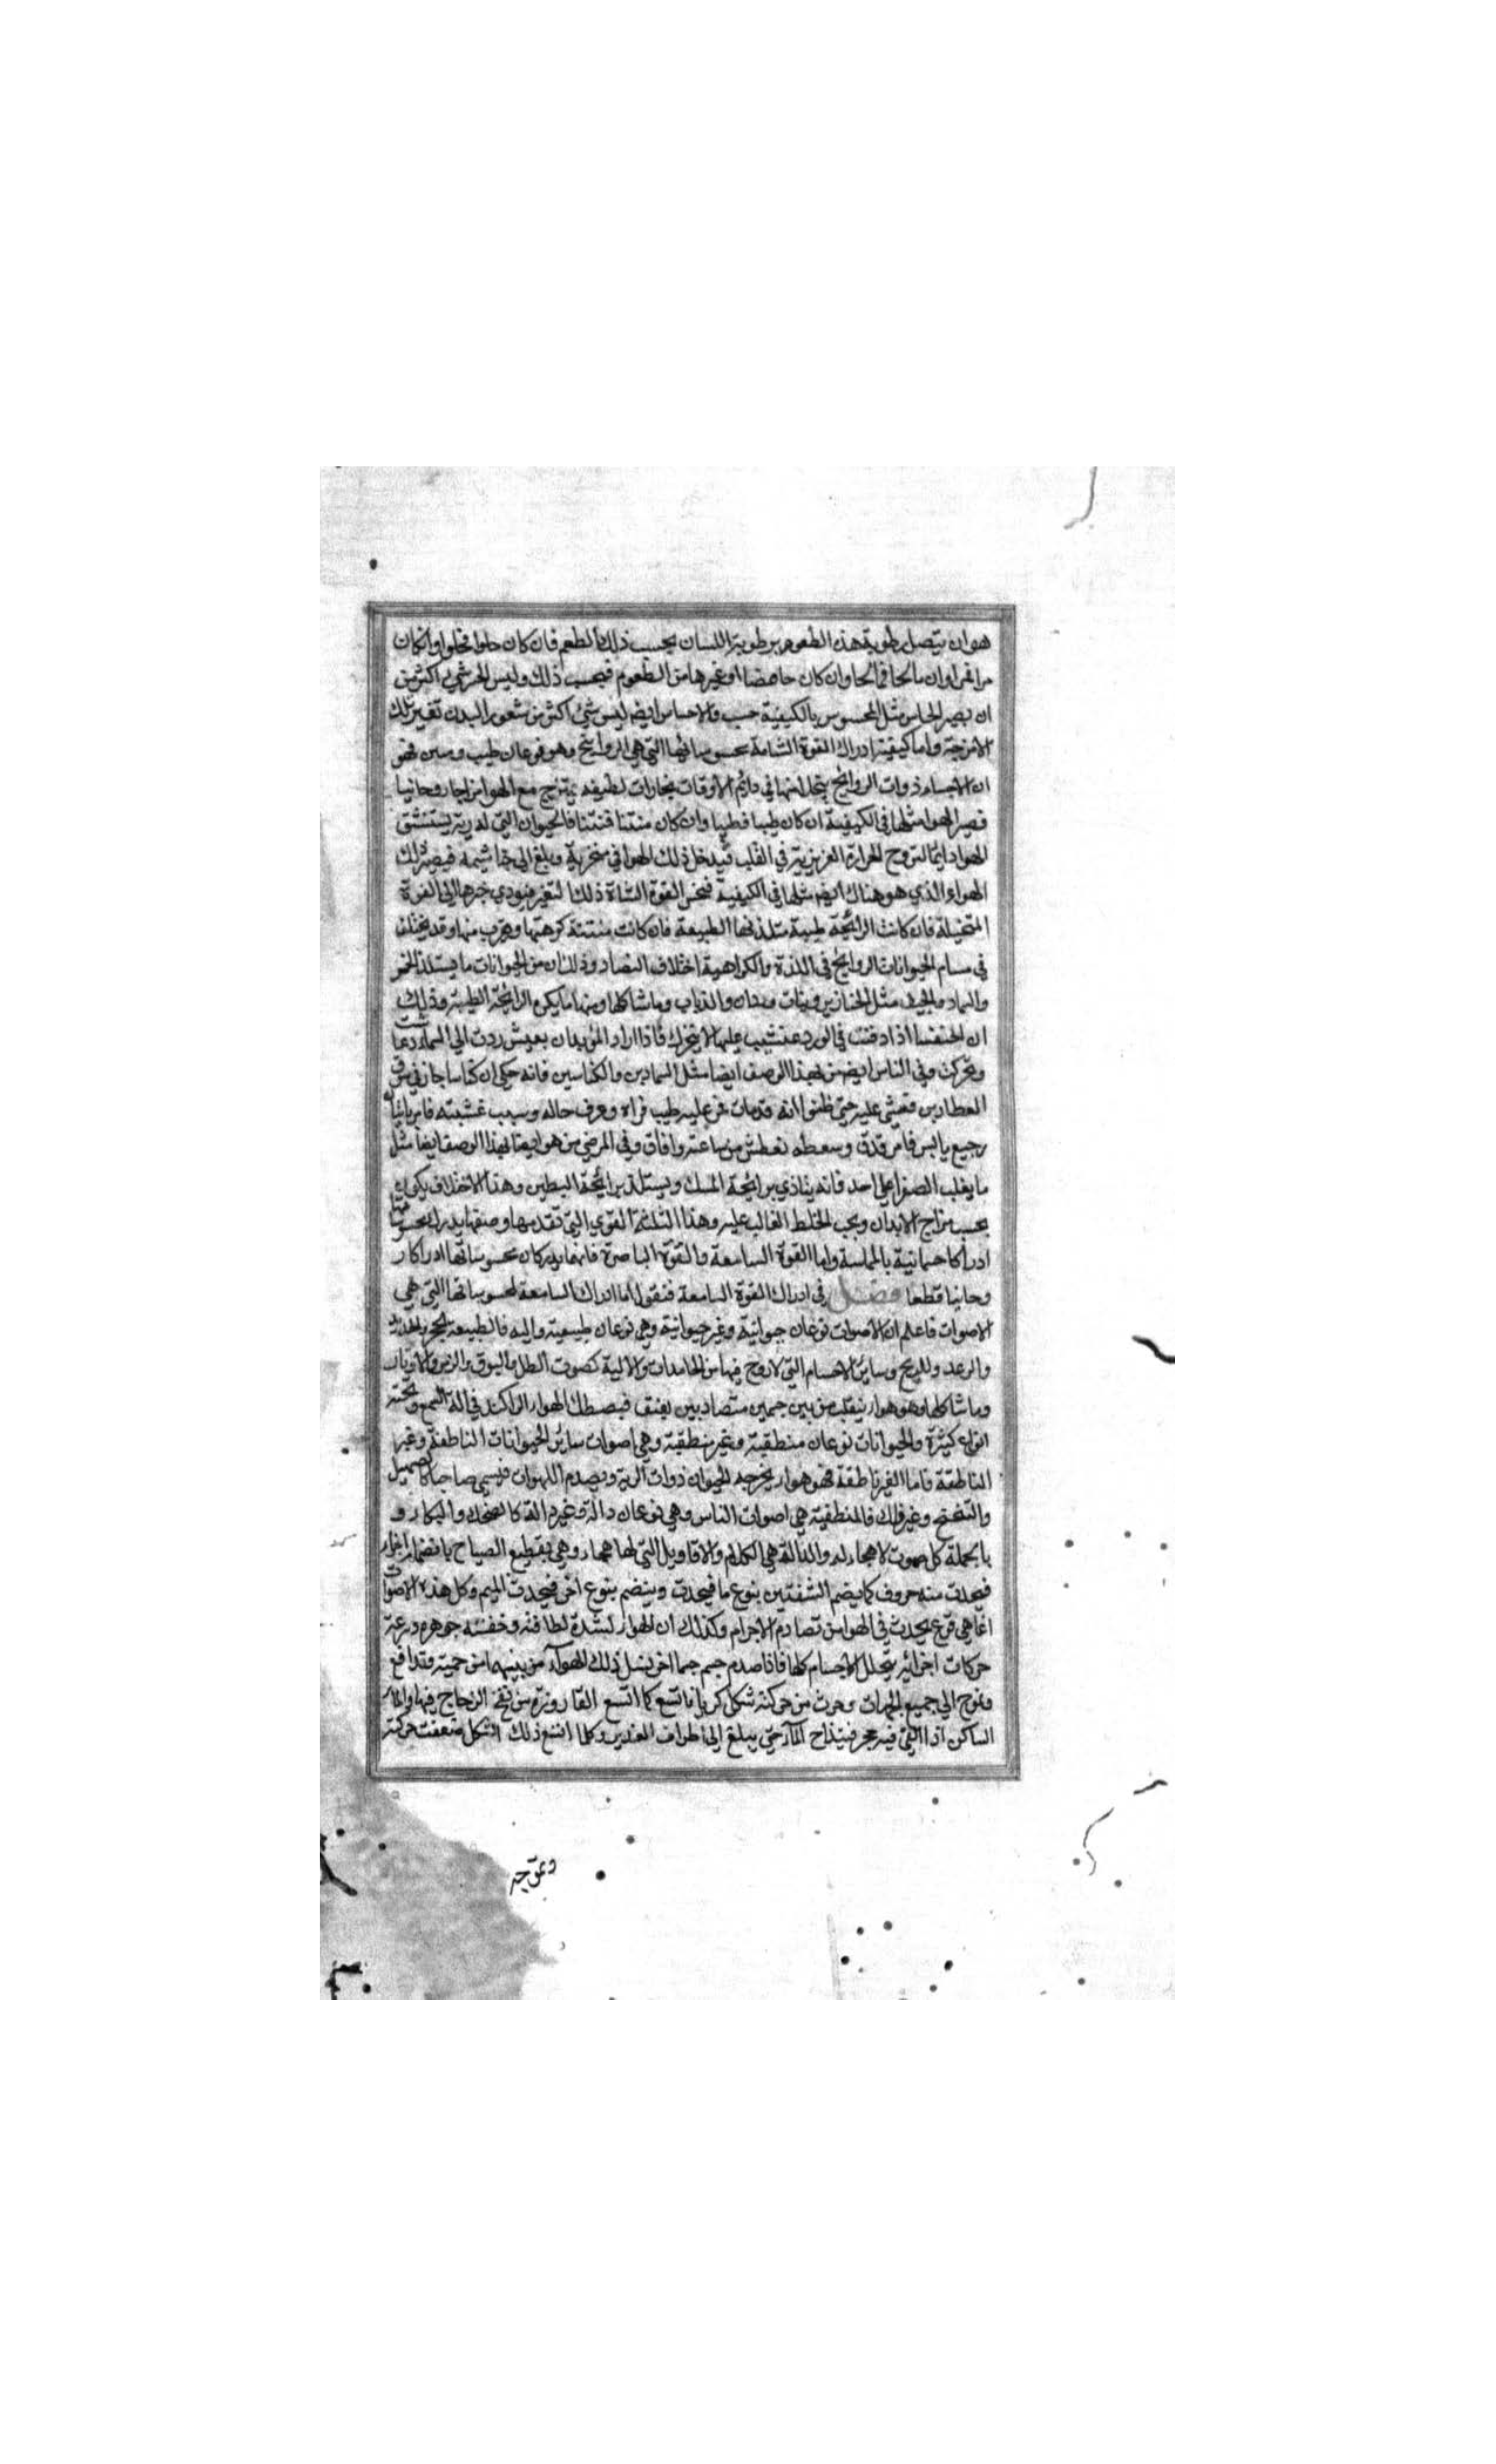 هو ان يتصل رطوبة هذه الطعوم برطوبة اللسان بحسب ذلك الطعم فان كان حلوا فحلوا وان كان
مرا فمرا وان مالحا فمالحا وان كان حامضا او غيرها من الطعوم فبحسب ذلك وليس الحس شيء اكثر من
ان يصير الحاس مثل المحسوس بالكيفية حسب والاحساس ايضا ليس شيئ اكثر من شعور البدن تغير تلك
الامزجة واما كيفية ادراك القوة الشامة بمحسوساتها التي هي الروايح وهو نوعان طيب ومنتن فهو
ان الاجساد ذوات الروايح يتحلل منها في دايم الاوقات بخارات لطيفه يمتزج مع الهوا مزاجا روحانيا
فصير الهوا مثلها في الكيفية ان كان طيبا فطيبا وان كان منتنا فنتنا فالحيوان التي له رية يستنشق
الهوا دايما لترويح الحرارة الغريزية في القلب فيدخل ذلك الهوا في منخريه ويبلغ الى خياشيمه فيصير ذلك
الهواء الذي هو هناك ايضا مثلها في الكيفية فتحس القوة الشامة ذلك التغير فتودي خبرها الى القوة
المتخيلة فان كانت الرائحة طيبة ستلذتها الطبيعة فان كانت منتنة كرهتها وهرب منها وقد يختلف
في مسام الحيوانات الروايح في اللذة والكراهية اختلاف التضاد وذلك ان من الحيوانات ما يستلذ الخر
والسماد والجيف مثل الخنازير وبنات وردان والذباب وما شاكلها ومنها ما يكره الرائحة الطيبة وذلك
ان الخنفسا اذا دفنت في الورد غشيت عليها لا يتحرك فاذا اراد المريد ان يعيش ردت الى السماد فعاشت
وتحركت وفي الناس ايضا من بهذا الوصف ايضا مثل السمادين والكناسين فانه حكي ان كناسا جاز في سوق
العطارين فغشي عليه حتى ظنوا انه قد مات فمر عليه طبيب فراه وعرف حاله وسبب غشيته فامر باتيان
رجيع يابس فامر فدق وسعطه فعطس من ساعته وافاق وفي المرضى من هو ايضا بهذا الوصف ايضا مثل
ما يغلب الصفرا على احد فانه يتاذي برائحة المسك ويستلذ برائحة الطين وهذا الاختلاف يكون
بحسب مزاج الابدان وبحب الخلط الغالب عليه وهذا الثلثة القوي التي تقدمها وصفها يدرك محسوساتها
ادراكا جسمانية بالمماسة واما القوة السامعة والقوة الباصرة فانهما يدركان محسوساتها ادراكا ر
وحانيا قطعا فصل في ادراك القوة السامعة فنقول اما ادراك السامعة لمحسوساتها التي هي
الاصوات فاعلم ان الاصوات نوعان حيوانية وغير حيوانية وهي نوعان طبيعية واليه فالطبيعه كالحجر والحديد
والرعد والريح وساير الاجسام التي لا روح فيها من الجامدات والالية كصوت الطبل والبوق والزمر والاوتار
وما شاكلها وهو هوا ينقلب من بين جسمين متصادمين بعنف فيصطك الهوا الراكد في الة السمع وتحته
انواع كثيرة والحيوانات نوعان منطقية وغير منطقية وهي اصوات ساير الحيوانات الناطقة وغير
الناطقة فاما الغير ناطقة فهو هوا يخرجه الحيوان ذوات الرية ويصدم اللهوات فيسمى صياحا كالصهيل
وغير ذلك فالمنطقية هي اصوات الناس وهي نوعان دالة وغير دالة كالضحك والبكاء و
بالجملة كل صوت لا هجاء له والدالة هي الكلام والاقاويل التي لها هجاء وهي بقطيع الصياح بانضمام اجزاء
فيحدث منه حروف كما يضم الشفتين بنوع ما فيحدث وينضم بنوع اخر فيحدث الميم وكل هذه الاصوات
انما هي قرع يحدث في الهوا من تصادم الاجرام وكذلك ان الهوا لشدة لطافته وخفته جوهره وسرعة
حركات اجزائه يتخلل الاجسام كلها فاذا صدم جسم جسما اخر ينسل ذلك الهوا من بينهما من حميته وتدافع
وتموج الى جميع الجهات وحدث من حركته شكل كري فاتسع كما اتسع القارورة من نفخ الزجاج فيها والماء
الساكن اذا القي فيه حجر فينداح الماء حتى يبلغ الى اطراف الغدير وكلما اتسع ذلك الشكل ضعفت حركته
وتموجه